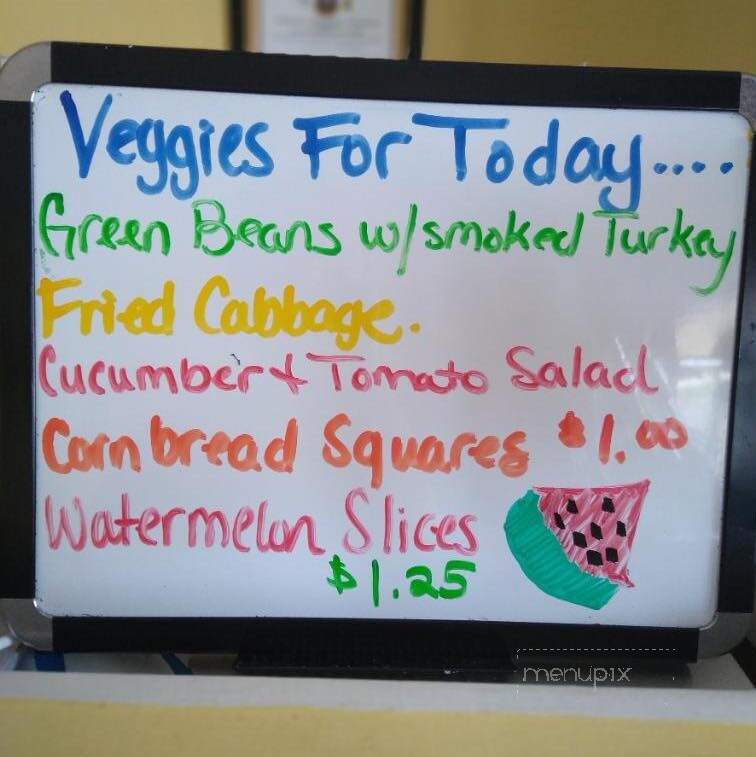 Veggies For Today....
Green Beans w/smoked Turkey
Fried Cabbage.
Cucumber & Tomato Salad
Cornbread Squares $1.00
Watermelon Slices
$1.25
menupix